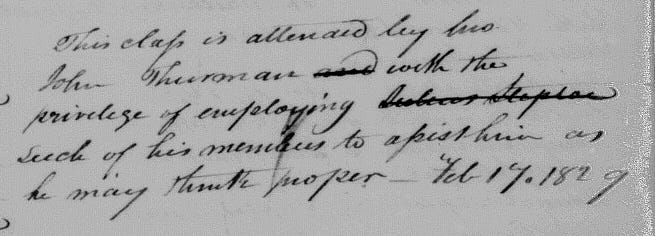 This class is attended by bro
John Thurman and with the
privilege of employing
such of his members to assist him as
he may think proper — Feb 17. 1829